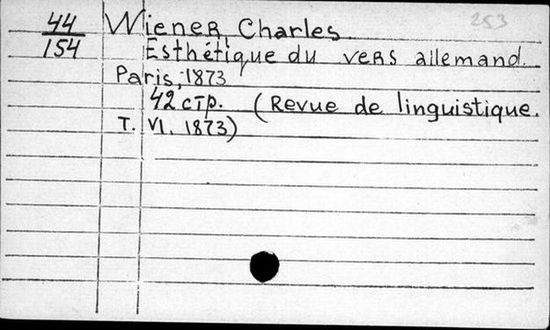 253
44
154
Wiener, Charles.
Esthétique du vers allemand.
Paris, 1873
42 стр. (Revue de linguistique.
T. VI. 1873)